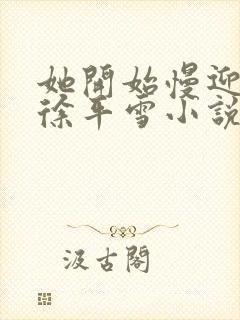 她開始慢迎
徐平雪小說
汲古閣